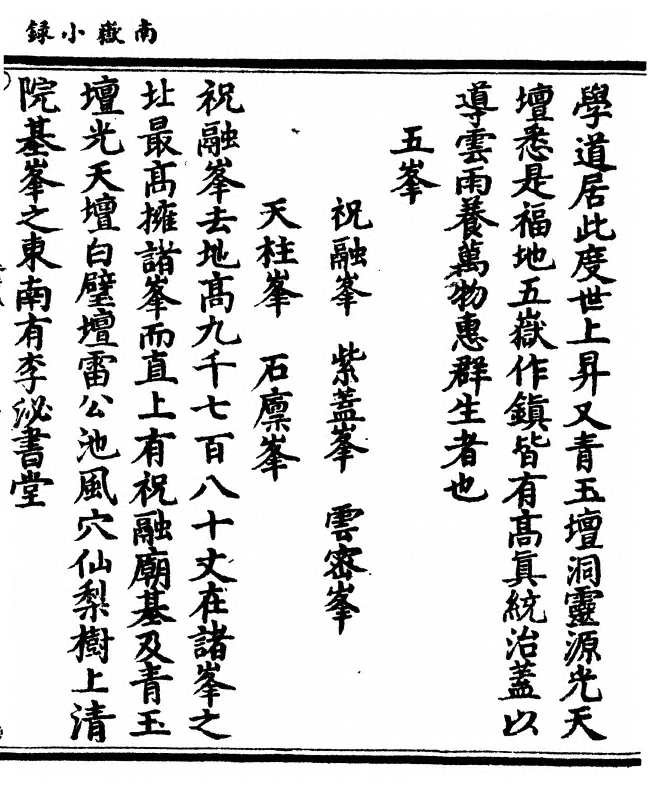 南嶽小録
學道居此度世上昇又青玉壇洞靈源光天
壇悉是福地五嶽作鎮皆有髙真統治蓋以
導雲雨養萬物惠群生者也
五峯
祝融峯 紫蓋峯 雲宻峯
天柱峯 石廪峯
祝融峯去地髙九千七百八十丈在諸峯之
圵最髙擁諸峯而直上有祝融廟基及青玉
壇光天壇白璧壇雷公池風穴仙梨樹上清
院基峯之東南有李泌書堂